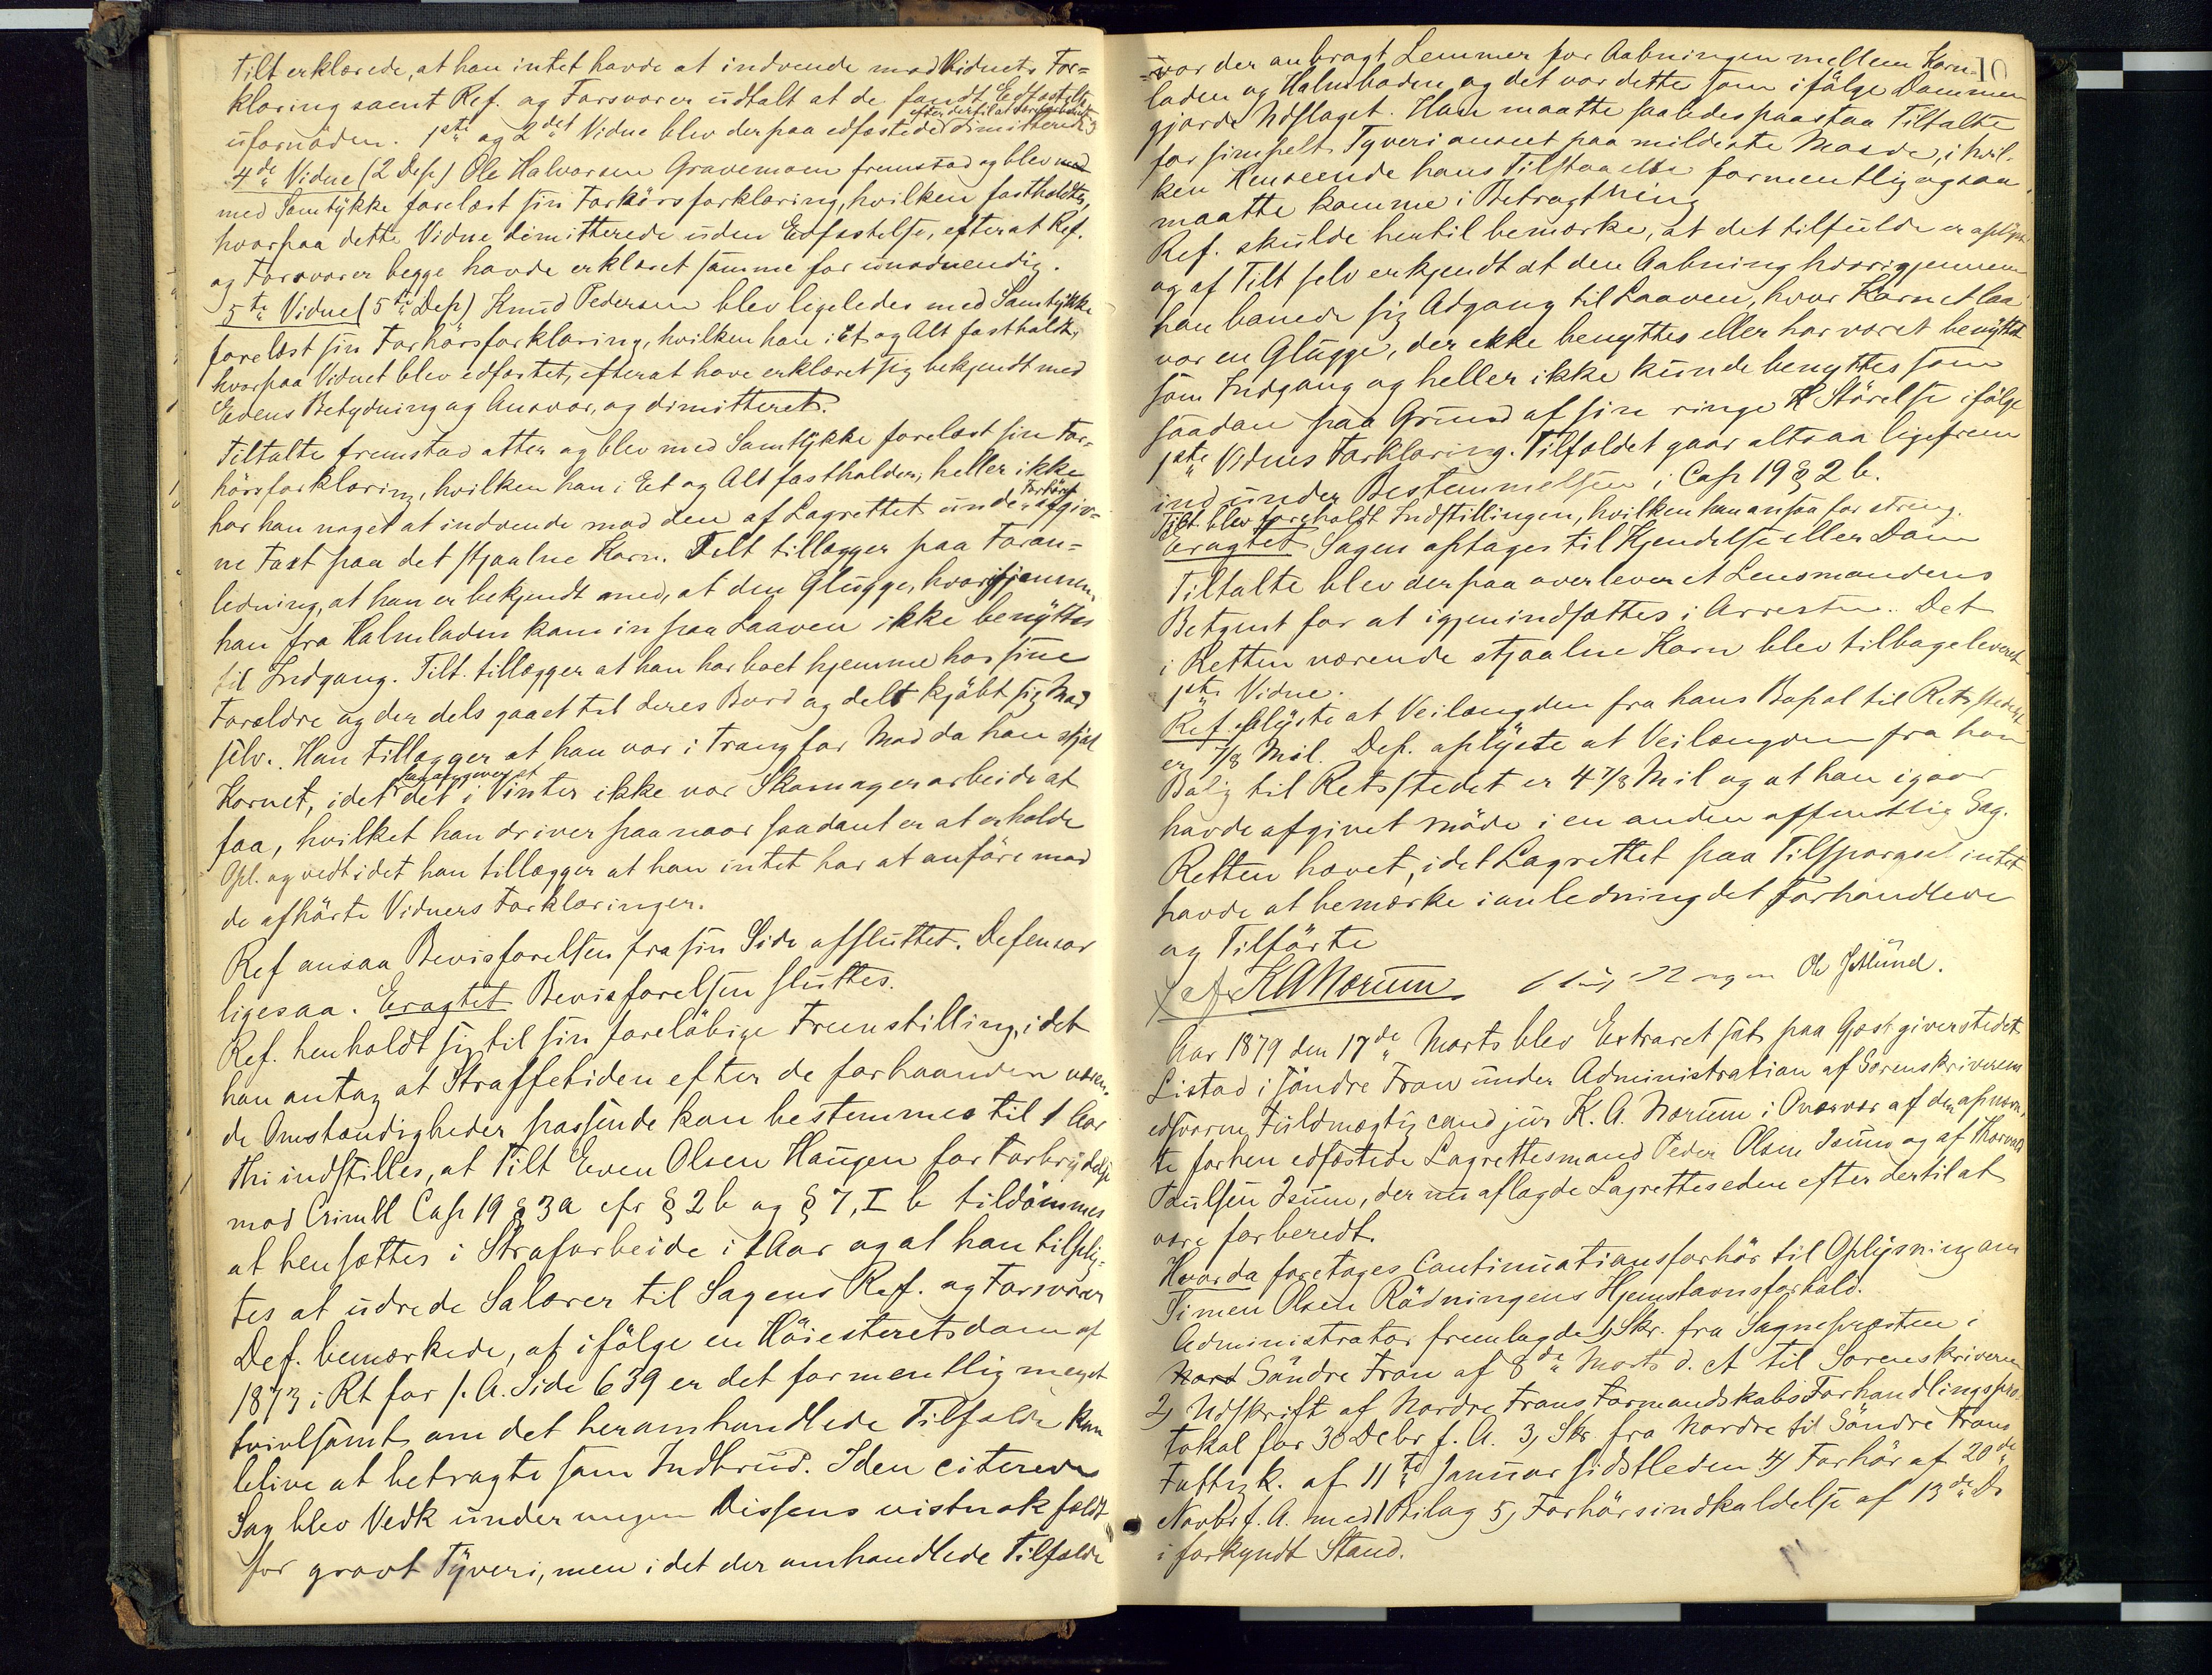 Tilt erklærede, at han intet havde at indvende mod Vidnets For=
klaring samt Ref. og Forsvarer udtalt at de fandt Edfæstelse
ufornöden. 1ste og 2det Vidne blev derpaa edfæstede dimitterede
4de Vidne (2 Dep) Ole Halvorsen Gravemoen fremstod og blev med
med Samtykke forelæst sin Forhörsforklaring, hvilken fastholdtes,
hvorpaa dette Vidne dimitterede uden Edfæstelse, efterat Ref.
og Forsvarer begge havde erklæret samme for unödvendig.
5te Vidne (5te Dep) Knud Pedersen blev ligeledes med Samtykke
forelæst sin Forhörsforklaring, hvilken han i Et og Alt fastholdt,
hvorpaa Vidnet blev edfæstet, efterat have erklæret sig bekjendt med
Edens Betydning og Ansvar, og dimitteret.
Tiltalte fremstod atter og blev med Samtykke forelæst sin For=
hörsforklaring, hvilken han i Et og Alt fastholder, heller ikke
har han noget at indvende mod den af Lagrettet under Forhöret afgiv=
ne Taxt paa det stjaalne Korn. Tilt tillægger paa Foran=
ledning, at han er bekjendt med, at den Glugge, hvorigjennem
han fra Halmladen kom in paa Laaven ikke benyttes
til Indgang. Tilt. tillægger at han har boet hjemme hos sine
Forældre og der dels gaaet til deres Bord og dels kjöbt sig Mad
selv. Han tillægger at han var i Trang for Mad da han stjal
Kornet, idet det i Vinter ikke var Skomagerarbeide at
faa, hvilket han driver paa naar saadant er at erholde
Opl. og vedt idet han tillægger at han intet har at anföre mod
de afhörte Vidners Forklaringer.
Ref ansaa Bevisförelsen fra sin Side afsluttet. Defensor
ligesaa. Eragtet Bevisförelsen sluttes.
Ref. henholdt sig til sin foreløbige Fremstilling, idet
han antog at Straffetiden efter de forhaanden væren=
de Omstændigheder passende kan bestemmes til 1 Aar
Thi indstilles, at Tilt Even Olsen Haugen for Forbrydelse
mod Crimll Cap 19 § 3 a cfr § 2 b og § 7, I b tildömmes
at hensættes i Strafarbeide i 1 Aar og at han tilplig=
tes at udrede Salærer til Sagens Ref. og Forsvarer
Def. bemærkede, at ifölge en Höiesteretsdom af
1873 i Rt for s. A. Side 639 er det formentlig meget
tvivlsomt om det heromhandlede Tilfælde kan
blive at betragte som Indbrud. I den citerede
Sag blev Vedk under megen Dissens vistnok fældt
for grovt Tyveri, men i det der omhandlede Tilfælde
10
var der anbragt Lemmer for Aabningen mellem Korn=
laden og Halmboden og det var dette som ifölge Dommen
gjorde Udslaget. Han maatte saaledes paastaa Tiltalte
for simpelt Tyveri anseet paa mildeste Maade, i hvil=
ken Henseende hans Tilstaaelse formentlig ogsaa
maatte komme i Betragtning
Ref. skulde hertil bemærke, at det tilfulde er oplyst
og af Tilt selv erkjendt at den Aabning hvorigjennem
han banede sig Adgang til Laaven, hvor Kornet laa
var en Glugge, der ikke benyttes eller har været benyttet
som Indgang og heller ikke kunde benyttes som
saadan paa Grund af sin ringe Störelse ifölge
1ste Vidnes Forklaring. Tilfældet gaar altsaa ligefrem
ind under Bestemmelsen i Cap 19 § 2 b.
Tilt blev foreholdt Indstillingen, hvilken han ansaa for streng.
Eragtet Sagen optages til Kjendelse eller Dom
Tiltalte blev derpaa overleveret Lensmandens
Betjent for at igjenindsættes i Arresten. Det
i Retten værende stjaalne Korn blev tilbageleveret
1ste Vidne.
Ref. oplyste at Veilængden fra hans Bopæl til Retsstedet
er 7/8 Mil. Def. oplyste at Veilængden fra hans
Bolig til Retsstedet er 4 7/8 Mil og at han igaar
havde afgivet möde i en anden offentlig Sag.
Retten hævet, idet Lagrettet paa Tilspörgsel intet
havde at bemærke i anledning det Forhandlede
og Tilförte
K A Norum Ole Jetlund.
Aar 1879 den 17de Marts blev Extraret sat paa Gjæstgiverstedet
Listad i Söndre Fron under Administration af Sorenskriverens
edsvorne Fuldmægtig cand jur K. A. Norum i Overvær af den opnævn=
te forhen edfæstede Lagrettesmand Peder Olsen Isum og af Thorvald
Poulsen Isum, der nu aflagde Lagretteseden efter dertil at
være forberedt.
Hvorda foretages Continuationsforhör til Oplysning om
Simen Olsen Rödningens Hjemstavnsforhold.
Administrator fremlagde 1) Skr. fra Sognepresten i
Nord Söndre Fron af 8de Marts d. A til Sorenskriveren
2) Udskrift af Nordre Frons Formandskabs Forhandlingspro
tokol for 30 Debr f. A. 3) Skr fra Nordre til Söndre Frons
Fattigk. af 11te Januar sidstleden 4) Forhör af 20de
Novbr f. A. med 1 Bilag 5) Forhörsindkaldelse af 13de Ds
i forkyndt Stand.